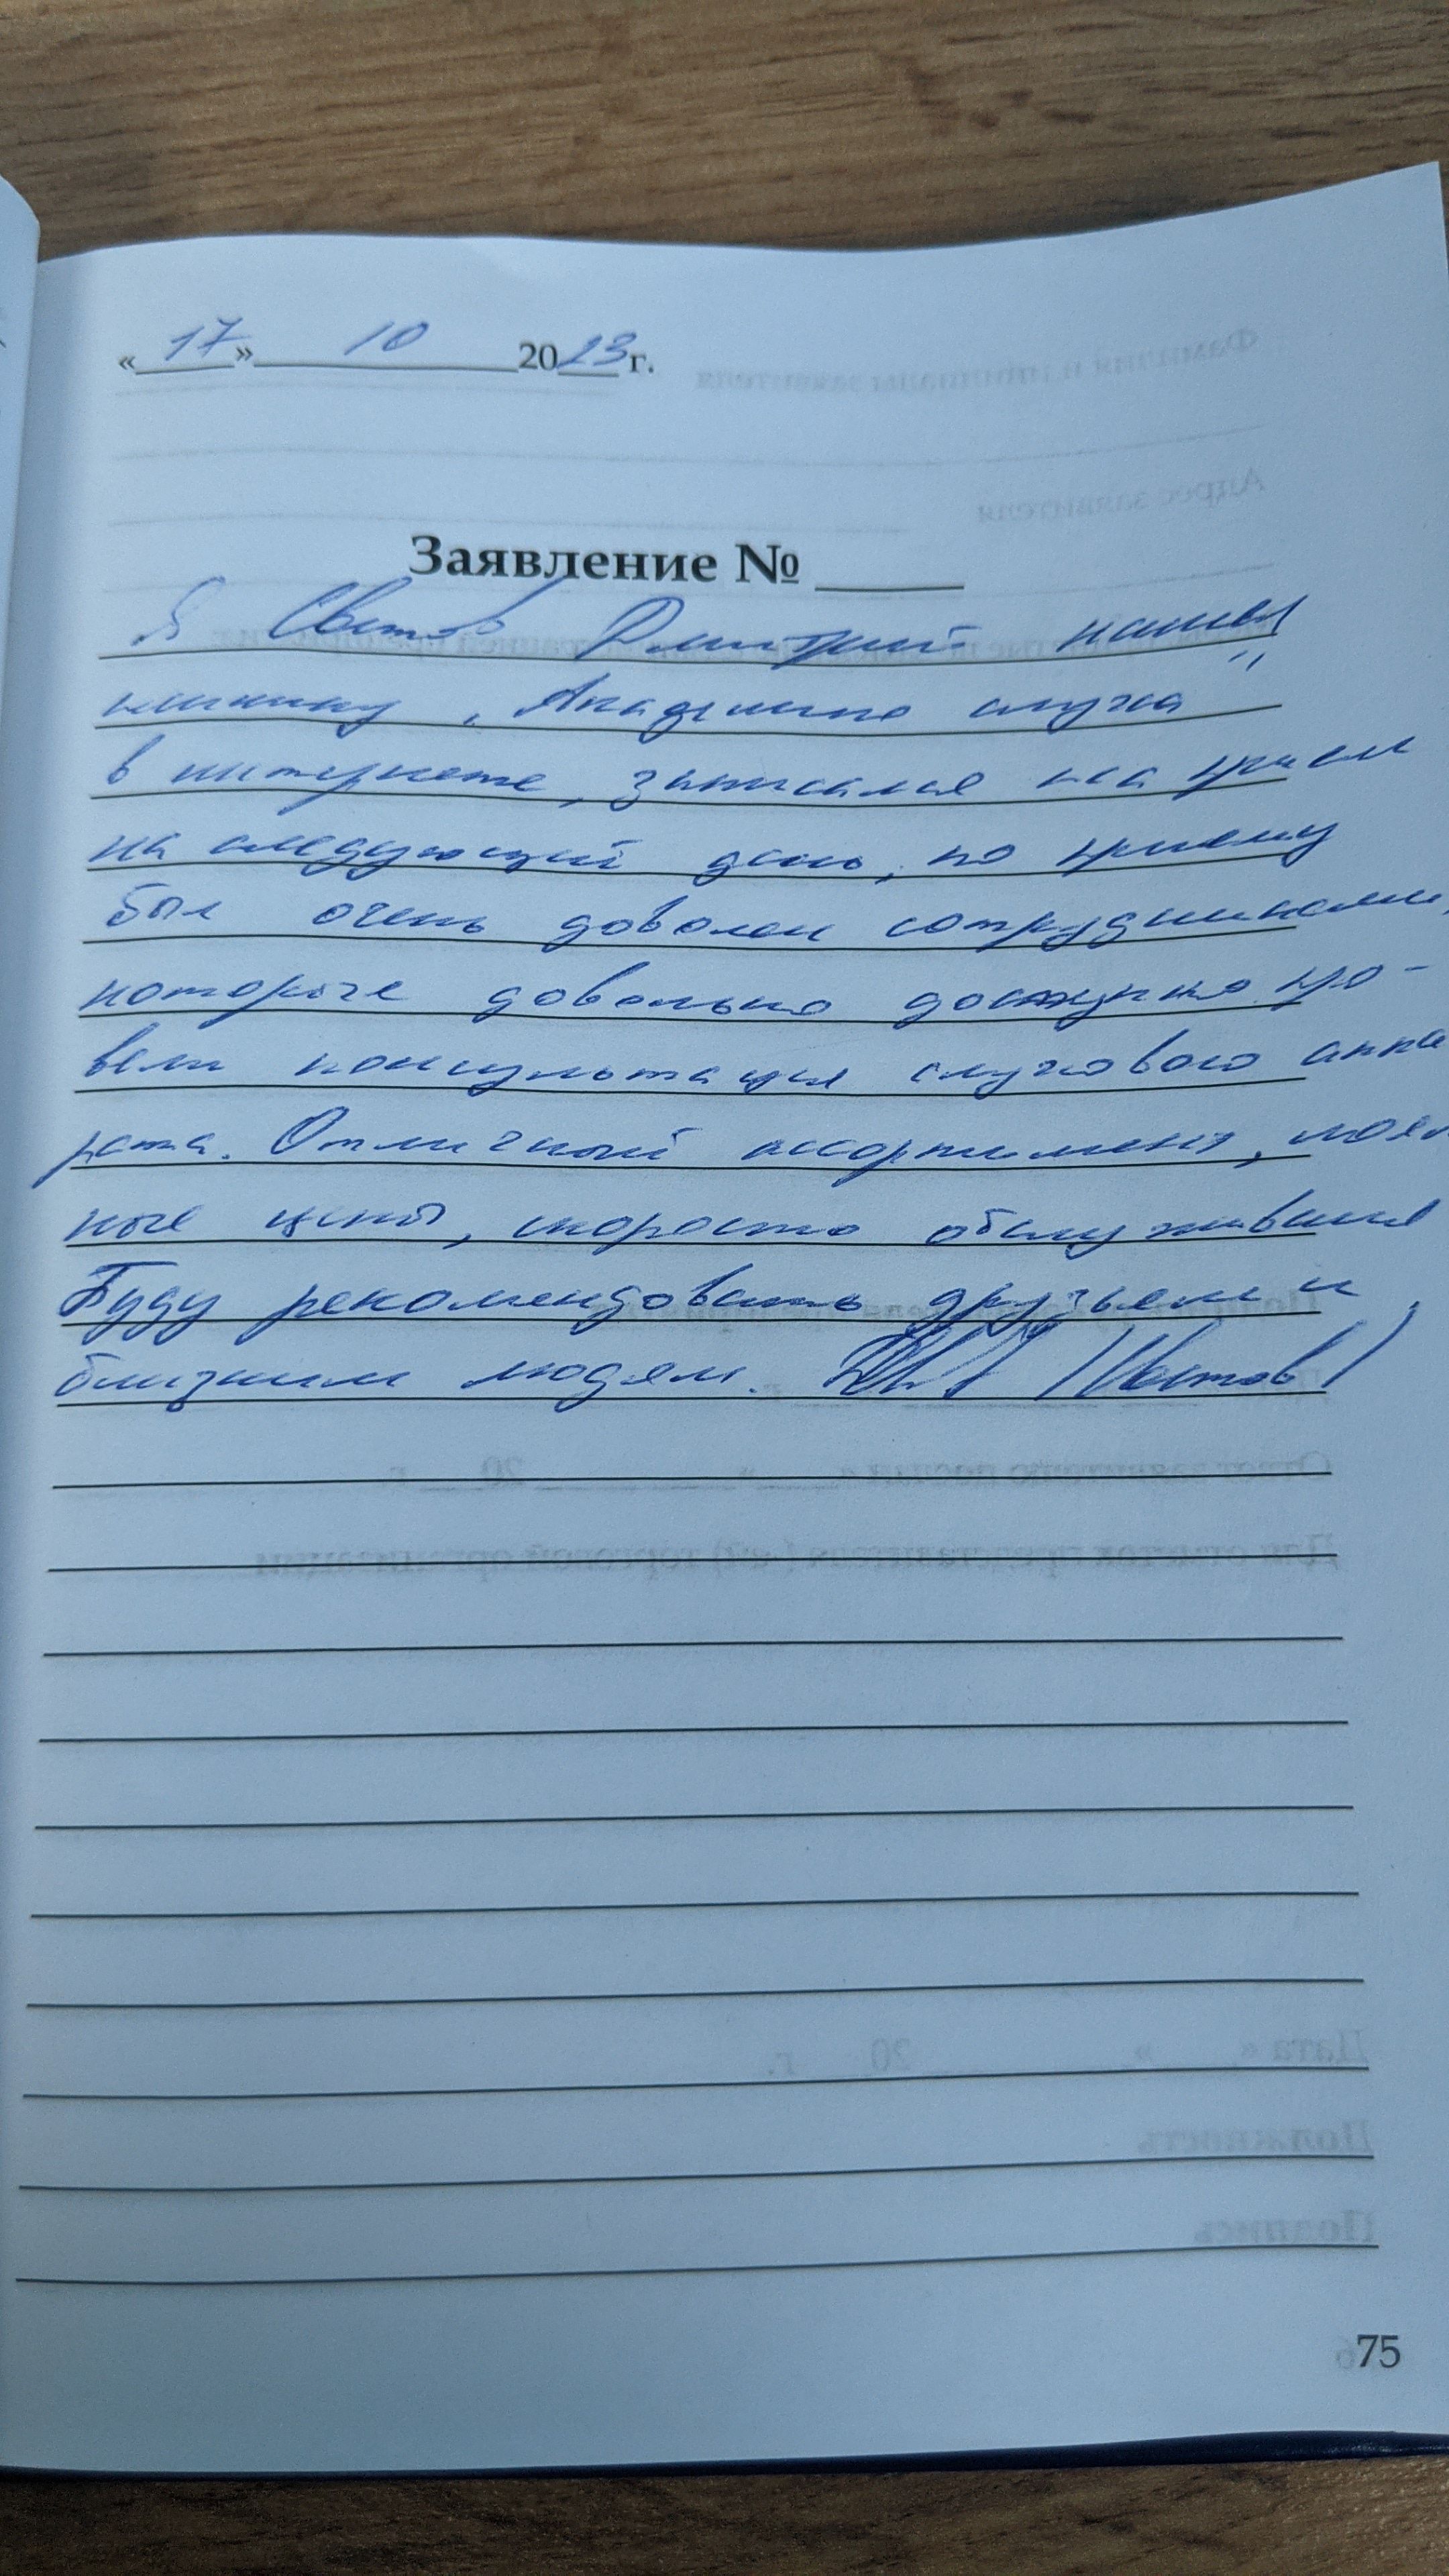 « 17 » 10 2023 г.
Заявление № ____
Я Светов Дмитрий нашел
клинику „Академия слуха"
в интернете, записался на прием
на следующий день, по приему
был очень доволен сотрудниками,
которые довольно доступно про-
вели консультация слухового аппа
рата. Отличный ассортимент,
ные цены, скорость обслуживания
Буду рекомендовать друзьям и
близким людям. /Светов/
75